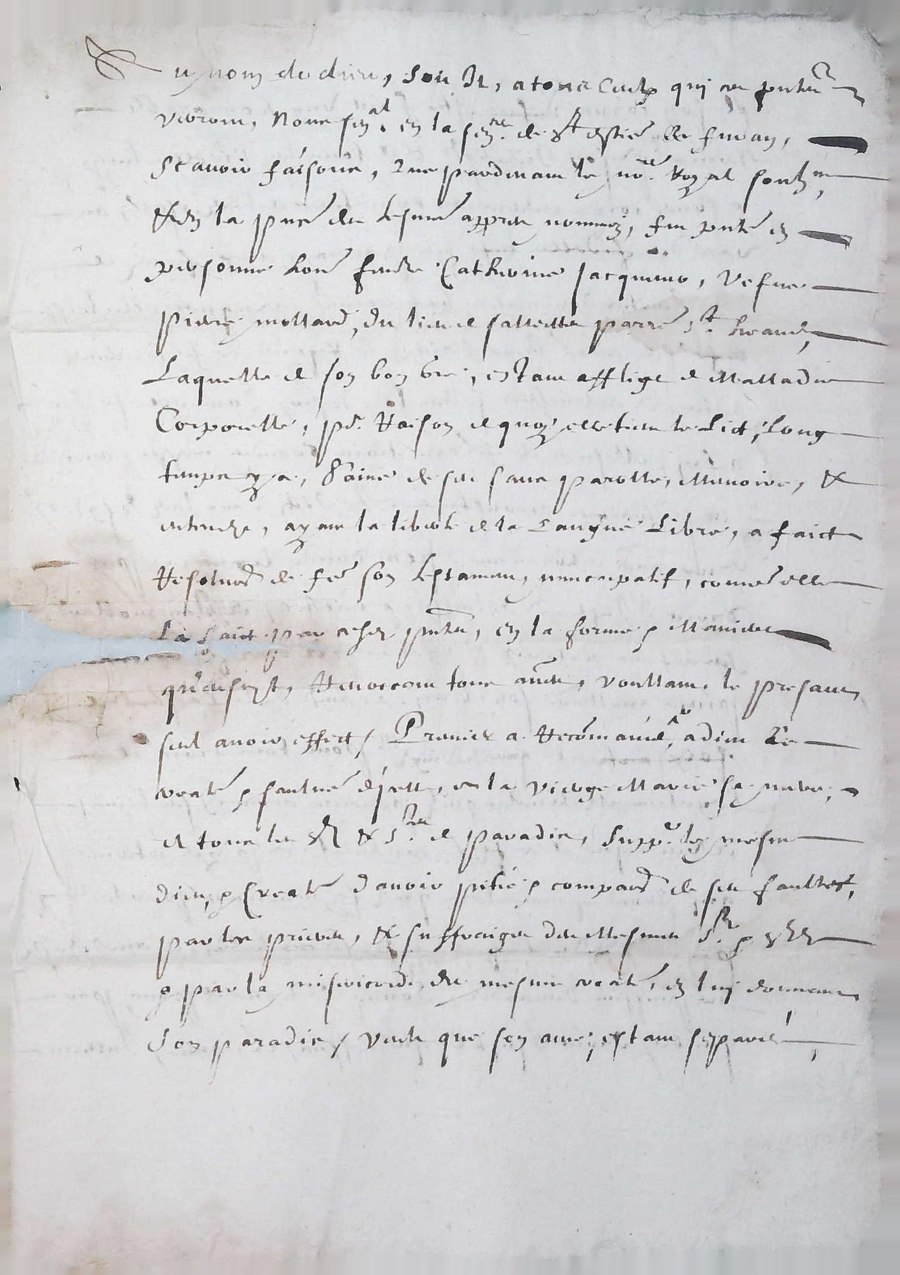 Au nom de dieu, soit Il, a tous Ceulx qui ces pntes
verront, Nous sen.al en la sen.ee de st
Scavoir faisons, Que pardevant le no.re Royal soub.ne
Et en la pnce des tesmes appres nommes, fut pnte en
personne hon.e femme Catherine Jacquemo, vefve
Pierre mollard, du lieu de sallettes parr.e st.
Laquelle de son bon gre, estant affligé de Malladie
Corporelle, pr. Raison de quoy elle tient le Lict, Long
temps y a, Saine de ses sens parolle, Memoire, &
entendt, ayant la liberte de la Langue Libre, a faict
Resolution de fe son testament, nuncupatif, comme elle
La faict par ches pntes, en la forme & Maniere
qu'ensuyt, Revoccant tous autres, voullant, le present
seul avoir effect / Premier a Recomandé, a dieu le
creatr & saulveur d'icelle, en la vierge Marie sa mere,
et tous les sts & s.tes de paradis, supp.t le mesme
dieu, & Creatr d'avoir pitié & compaon de ses faultes,
par les prieres, & suffraiges des Mesmes s.tz & s.tes
& par la misericorde du mesme creatr, en luy donnant
Son paradis / veult que son ame, estant separée